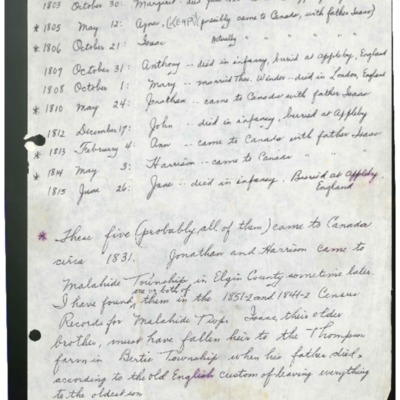 1803 October 30: Margaret - died
* 1805 May 12: Agnes, (possibly came to Canada, with father Isaac)
* 1806 October 21: Isaac Actually " " " " "
1807 October 31: Anthony -- died in infancy, buried at Appleby, England
1808 October 1: Mary -- married Thos. -- died in London, England
* 1810 May 24: Jonathan -- came to Canada with father Isaac
1812 December 17: John -- died in infancy, buried at Appleby
* 1813 February 4: Ann -- came to Canada with father Isaac
* 1814 May 3: Harrison -- came to Canada " "
1815 June 26: Jane -- died in infancy, Buried at Appleby
England
* These five (probably, all of them) came to Canada
circa 1831. Jonathan and Harrison came to
Malahide Township in Elgin County sometime later.
one or both of
I have found them in the 1851-2 and 1844-2 Census
Records for Malahide Twp. Isaac, their older
brother, must have fallen heir to the Thompson
farm in Bertie Township when his father died,
according to the old English custom of leaving everything
to the oldest son